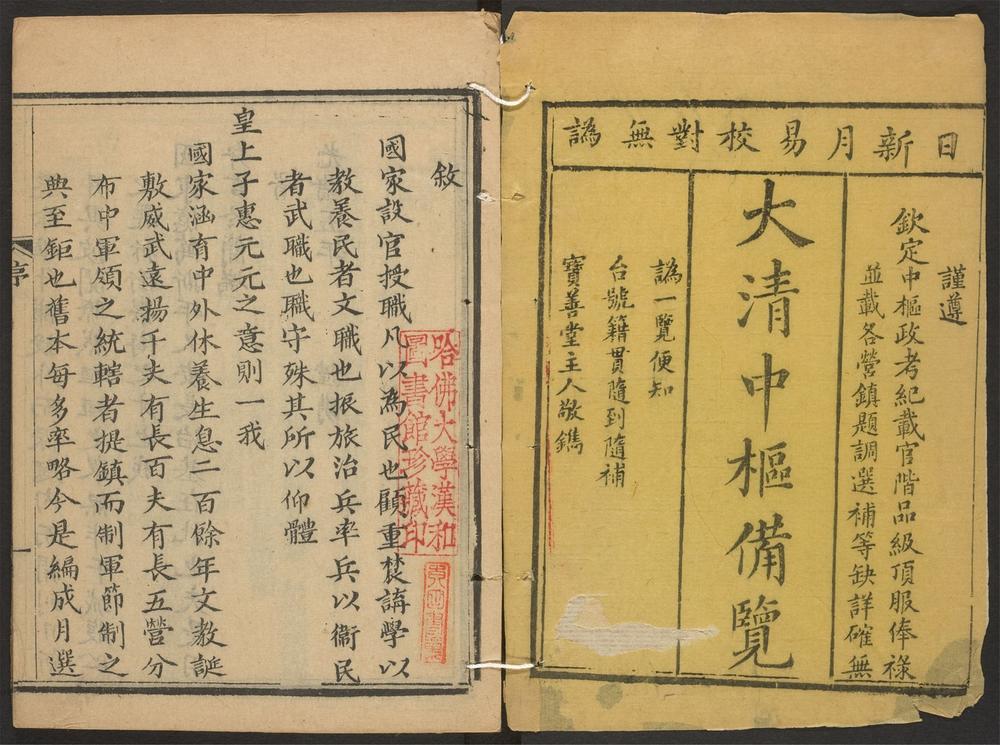 日新月易校對無譌
謹遵
欽定中樞政考紀載官階品級頂服俸祿
並載各營鎮題調選補等缺詳確無
大清中樞備覽
譌一覽便知
台號籍貫隨到隨補
寶善堂主人敬鐫
敘
國家設官授職凡以為民也顧重講學以
教養民者文職也振旅治兵率兵以衛民
者武職也職守殊其所以仰體
皇上子惠元元之意則一我
國家涵育中外休養生息二百餘年文教誕
敷威武遠揚千夫有長百夫有長五營分
布中軍領之統轄者提鎮而制軍節制之
典至鉅也舊本每多率略今是編成月選
序
一
哈佛大學漢和
圖書館珍藏印